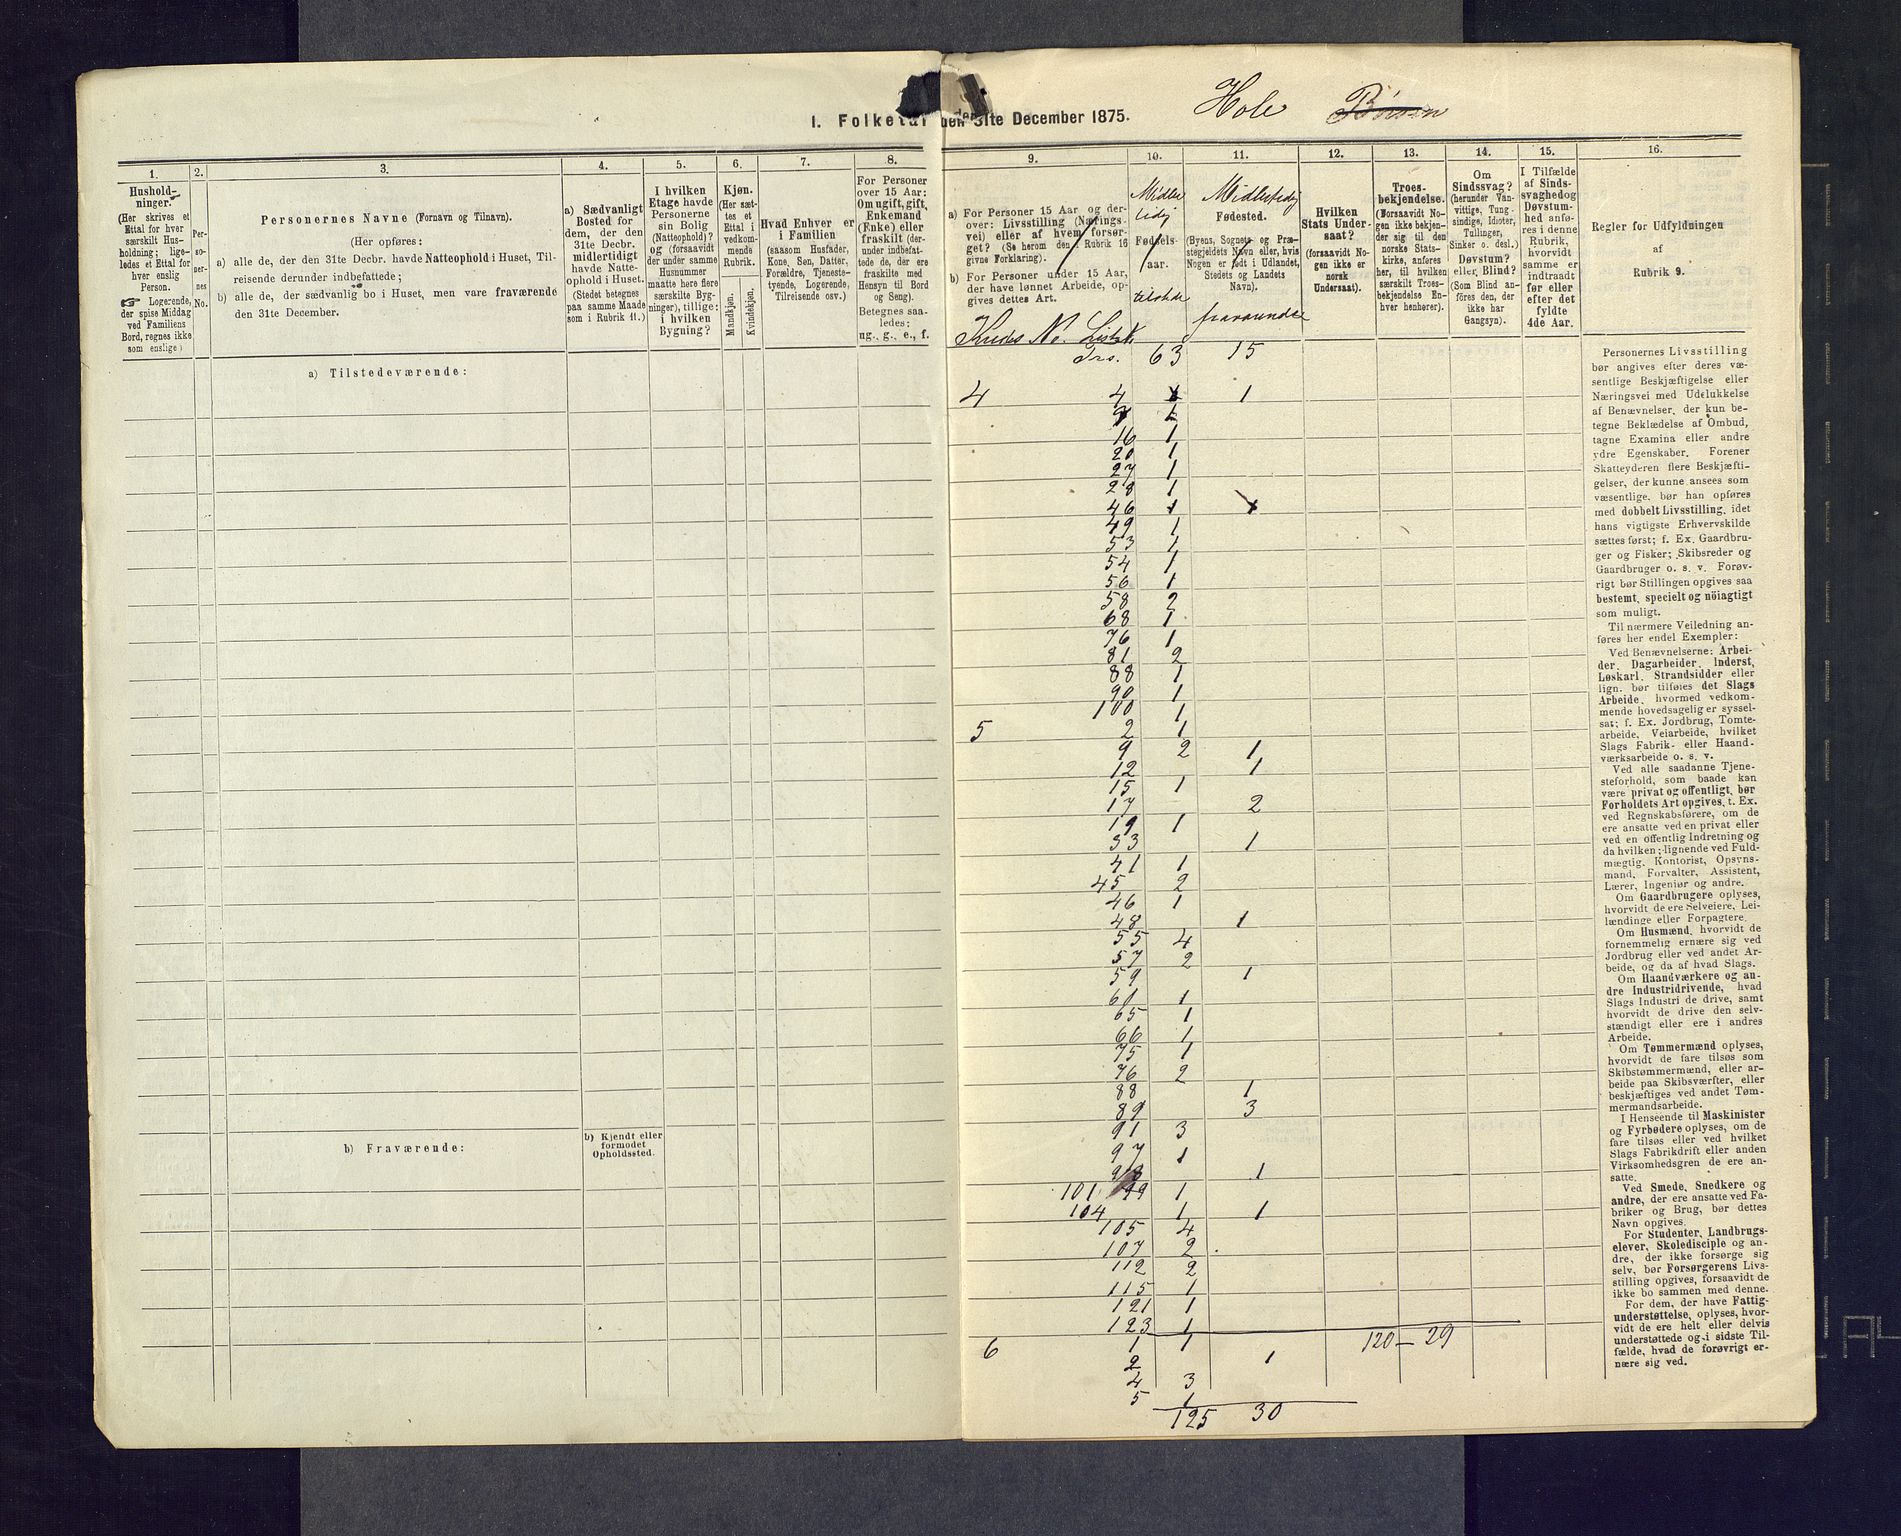 Hole Børsen
I. Folketal den 31te December 1875.
1. 2. 3. 4. 5. 6. 7. 8. 9. 10. 11. 12. 13. 14. 15. 16.
Hushold-
ninger.
(Her skrives et
Ettal for hver
særskilt Hus-
holdning; lige-
ledes et Ettal for
hver enslig
Person.
☞ Logerende,
der spise Middag
ved Familiens
Bord, regnes ikke
som enslige.)
Per-
so-
per-
nes
No.
Personernes Navne (Fornavn og Tilnavn).
(Her opføres:
a) alle de, der den 31te Decbr. havde Natteophold i Huset, Til-
reisende derunder indbefattede;
b) alle de, der sædvanlig bo i Huset, men vare fraværende
den 31te December.
a) Sædvanligt
Bosted for
dem, der den
31te Decbr.
midlertidigt
havde Natte-
ophold i Huset.
(Stedet betegnes
paa samme Maade
som i Rubrik 11.)
I hvilken
Etage havde
Personerne
sin Bolig
(Natteophold)?
og (forsaavidt
der under samme
Husnummer
maatte høre flere
særskilte Byg-
ninger), tillige:
i hvilken
Bygning?
Kjøn.
(Her sæt-
tes et
Ettal i
vedkom-
mende
Rubrik.
Mandkjøn.
Kvindekjøn.
Hvad Enhver er
i Familien
(saasom Husfader,
Kone, Søn, Datter,
Forældre, Tjeneste-
tyende, Logerende,
Tilreisende osv.)
For Personer
over 15 Aar:
Om ugift, gift,
Enkemand
(Enke) eller
fraskilt (der-
under indbefat-
tede de, der ere
fraskilte med
Hensyn til Bord
og Seng).
Betegnes saa-
ledes:
ug., g., e., f.
a) For Personer 15 Aar og der-
over: Livsstilling (Nærings-
vei) eller af hvem forsør-
get? (Se herom den Rubrik 16
givne Forklaring).
b) For Personer under 15 Aar,
der have lønnet Arbeide, op-
gives dettes Art.
Kreds No. Liste
Midler
tidig
Fødsels-
aar.
tilstede
Midlertidig
Fødested.
(Byens, Sognets og Præ-
stegjeldets Navn eller, hvis
Nogen er født i Udlandet,
Stedets og Landets
Navn).
fraværende
Hvilken
Stats Under-
saat?
(forsaavidt No-
gen ikke er
norsk
Undersaat).
Troes-
bekjendelse.
(Forsaavidt No-
gen ikke bekjen-
der sig til den
norske Stats-
kirke, anføres
her, til hvilken
særskilt Troes-
bekjendelse En-
hver henhører).
Om
Sindssvag?
(herunder Van-
vittige, Tung-
sindige, Idioter,
Tullinger,
Sinker o. desl.)
Døvstum?
eller Blind?
(Som Blind an-
føres den, der
ikke har
Gangsyn).
I Tilfælde
af Sinds-
svaghed og
Døvstum-
hed anfø-
res i denne
Rubrik,
hvorvidt
samme er
indtraadt
før eller
efter det
fyldte
4de Aar.
Regler for Udfyldningen
af
Rubrik 9.
Trs. 63 15
a) Tilstedeværende:
4 4 1 1
9 1
16 1
20 1
27 1
28 1
46 1 1
49 1
53 1
54 1
56 1
58 2
68 1
76 1
81 2
88 1
90 1
100 1
5 2 1
9 2 1
12 1
15 1
17 2
19 1
33 1
41 1
45 2
46 1
48 1
55 4
57 2
59 1
61 1
65 1
66 1
75 1
76 2
88 1
89 3
91 3
97 1
98 1
101 99 1
104 1 1
105 4
107 2
112 2
115 1
121 1
123 1
6 1 1 120 – 29
2 1
4 3
5 1
125 30
b) Fraværende:
b) Kjendt eller
formodet
Opholdssted.
Personernes Livsstilling
bør angives efter deres væ-
sentlige Beskjæftigelse eller
Næringsvei med Udelukkelse
af Benævnelser, der kun be-
tegne Beklædelse af Ombud,
tagne Examina eller andre
ydre Egenskaber. Forener
Skatteyderen flere Beskjæfti-
gelser, der kunne ansees som
væsentlige, bør han opføres
med dobbelt Livsstilling, idet
hans vigtigste Erhvervskilde
sættes først; f. Ex. Gaardbru-
ger og Fisker; Skibsreder og
Gaardbruger o. s. v. Forøv-
rigt bør Stillingen opgives saa
bestemt, specielt og nöiagtigt
som muligt.
Til nærmere Veiledning an-
føres her endel Exempler:
Ved Benævnelserne: Arbei-
der, Dagarbeider, Inderst,
Løskarl, Strandsidder eller
lign. bør tilføies det Slags
Arbeide, hvormed vedkom-
mende hovedsagelig er syssel-
sat; f. Ex. Jordbrug, Tomte-
arbeide, Veiarbeide, hvilket
Slags Fabrik- eller Haand-
værksarbeide o. s. v.
Ved alle saadanne Tjene-
steforhold, som baade kan
være privat og offentligt, bør
Forholdets Art opgives, t. Ex.
ved Regnskabsførere, om de
ere ansatte ved en privat eller
ved en offentlig Indretning og
da hvilken; lignende ved Fuld-
mægtig, Kontorist, Opsyns-
mand, Forvalter, Assistent,
Lærer, Ingeniør og andre.
Om Gaardbrugere oplyses,
hvorvidt de ere Selveiere, Lei-
lændinge eller Forpagtere.
Om Husmænd, hvorvidt de
fornemmelig ernære sig ved
Jordbrug eller ved andet Ar-
beide, og da af hvad Slags.
Om Haandværkere og an-
dre Industridrivende, hvad
Slags Industri de drive, samt
hvorvidt de drive den selv-
stændigt eller ere i andres
Arbeide.
Om Tømmermænd oplyses,
hvorvidt de fare tilsøs som
Skibstømmermænd, eller ar-
beide paa Skibsværfter, eller
beskjæftiges ved andet Tøm-
mermandsarbeide.
I Henseende til Maskinister
og Fyrbødere oplyses, om de
fare tilsøs eller ved hvilket
Slags Fabrikdrift eller anden
Virksomhedsgren de ere an-
satte.
Ved Smede, Snedkere og
andre, der ere ansatte ved Fa-
briker og Brug, bør dettes
Navn opgives.
For Studenter, Landbrugs-
elever, Skoledisciple og an-
dre, der ikke forsørge sig
selv, bør Forsørgerens Livs-
stilling opgives, forsaavidt de
ikke bo sammen med denne.
For dem, der have Fattig-
understøttelse, oplyses, hvor-
vidt de ere helt eller delvis
understøttede og i sidste Til-
fælde, hvad de forøvrigt er-
nære sig ved.